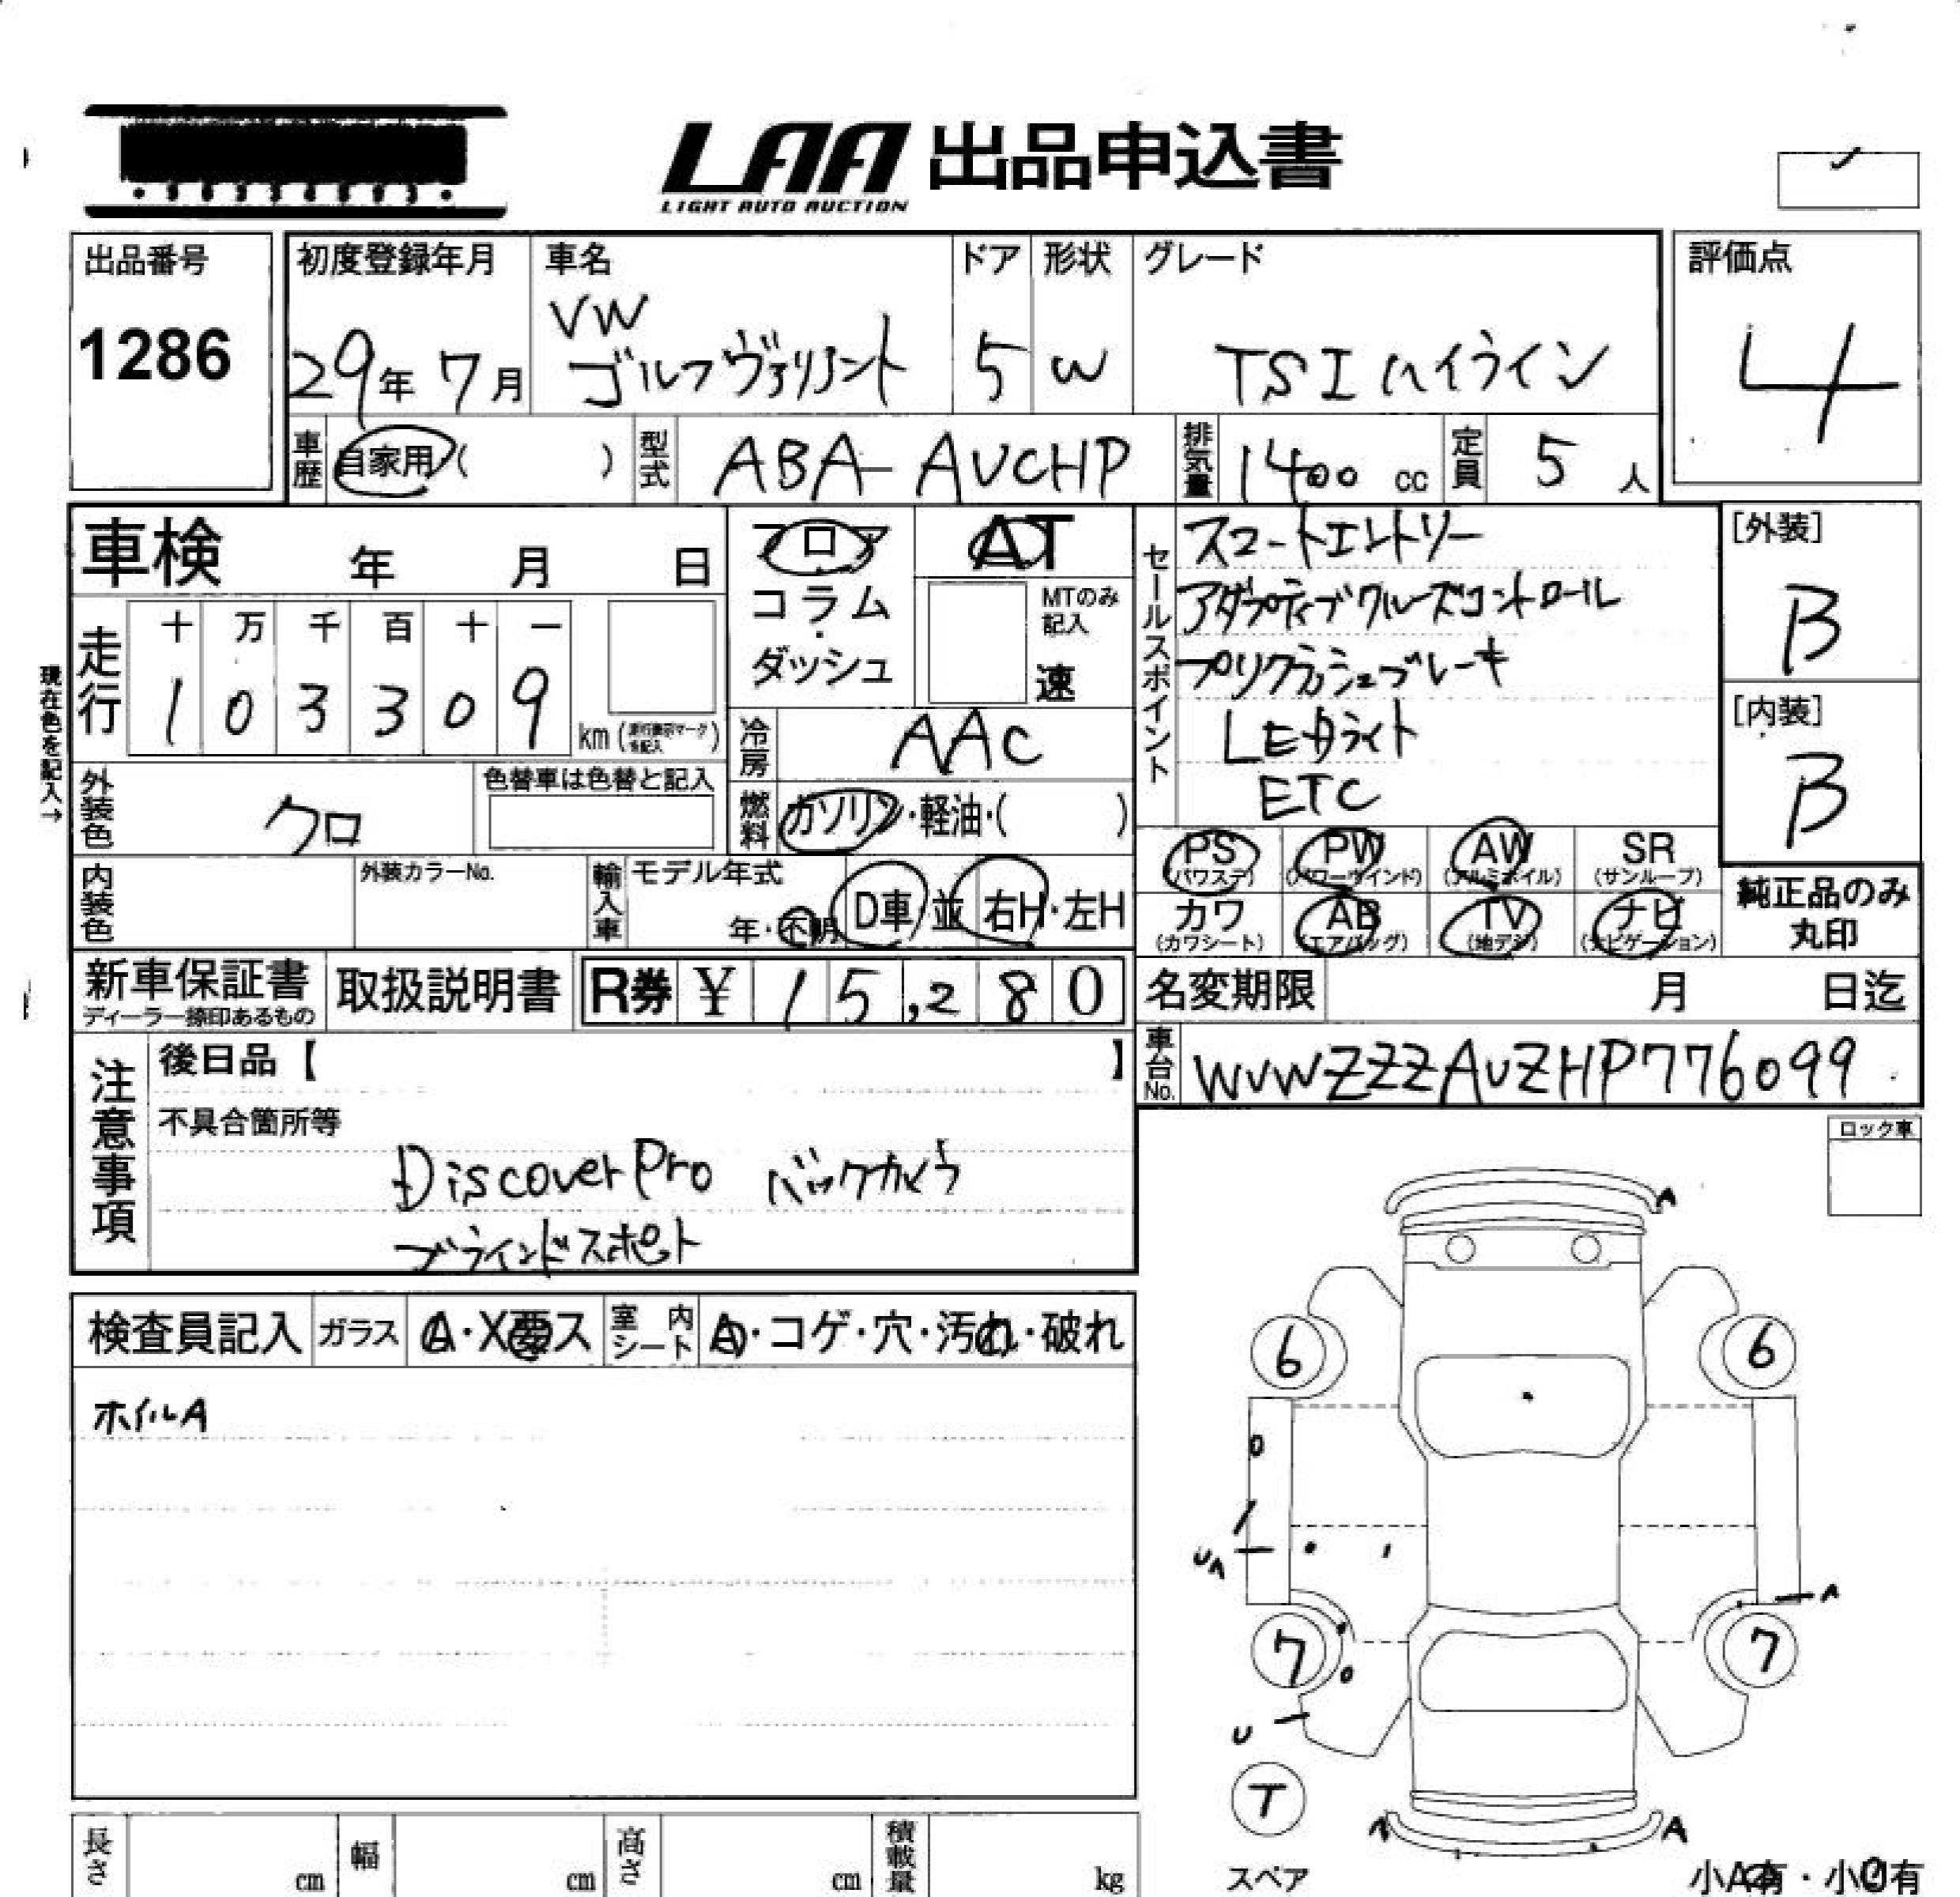 LAA 出品申込書
LIGHT AUTO AUCTION
出品番号
1286
初度登録年月
29年 7月
車名
VW
ゴルフヴァリアント
ドア
5
形状
W
グレード
TSIハイライン
評価点
4
車歴 自家用 ( )
型式 ABA-AVCHP
排気量 1400 cc
定員 5 人
車検 年 月 日
フロア
コラム
・
ダッシュ
AT
MTのみ
記入
速
現在色を記入→
走行
十 万 千 百 十 一
1 0 3 3 0 9
km ( )
冷房 AAC
セールスポイント
スマートエントリー
アダプティブクルーズコントロール
プリクラッシュブレーキ
LEDライト
ETC
[外装]
B
[内装]
B
外装色 クロ
色替車は色替と記入
燃料 ガソリン・軽油・( )
内装色
外装カラーNo.
輸入車
モデル年式
年・不明
D車・並
右H・左H
PS
(パワステ)
PW
(パワーウインド)
AW
(アルミホイル)
SR
(サンルーフ)
カワ
(カワシート)
AB
(エアバッグ)
TV
(地デジ)
ナビ
(ナビゲーション)
純正品のみ
丸印
新車保証書
ディーラー捺印あるもの
取扱説明書
R券 ¥ 15,280
名変期限 月 日迄
車台No. WVWZZZAUZHP776099
注意事項
後日品【 】
不具合箇所等
DiscoverPro バックカメラ
ブラインドスポット
ロック車
検査員記入
ガラス A・X要ス
室内シート A・コゲ・穴・汚れ・破れ
ホイルA
A
6
6
UA
A
7
7
U
T
スペア
A
小A有・小U有
長さ cm
幅 cm
高さ cm
積載量 kg